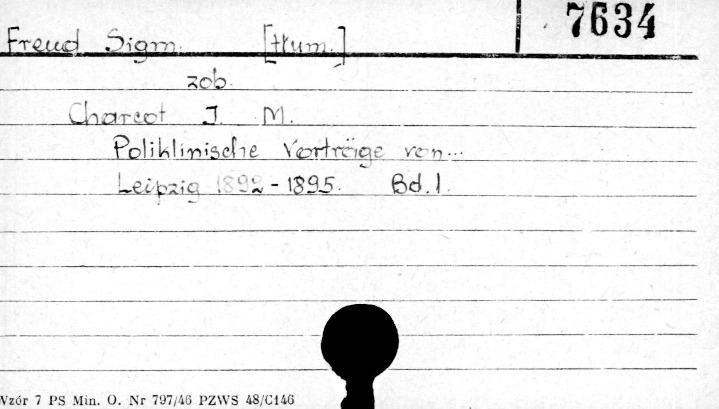 7634
Freud Sigm. [tłum.]
zob.
Charcot J. M.
Poliklinische Vorträge von...
Leipzig 1892-1895. Bd. 1.
Wzór 7 PS Min. O. Nr 797/46 PZWS 48/C146